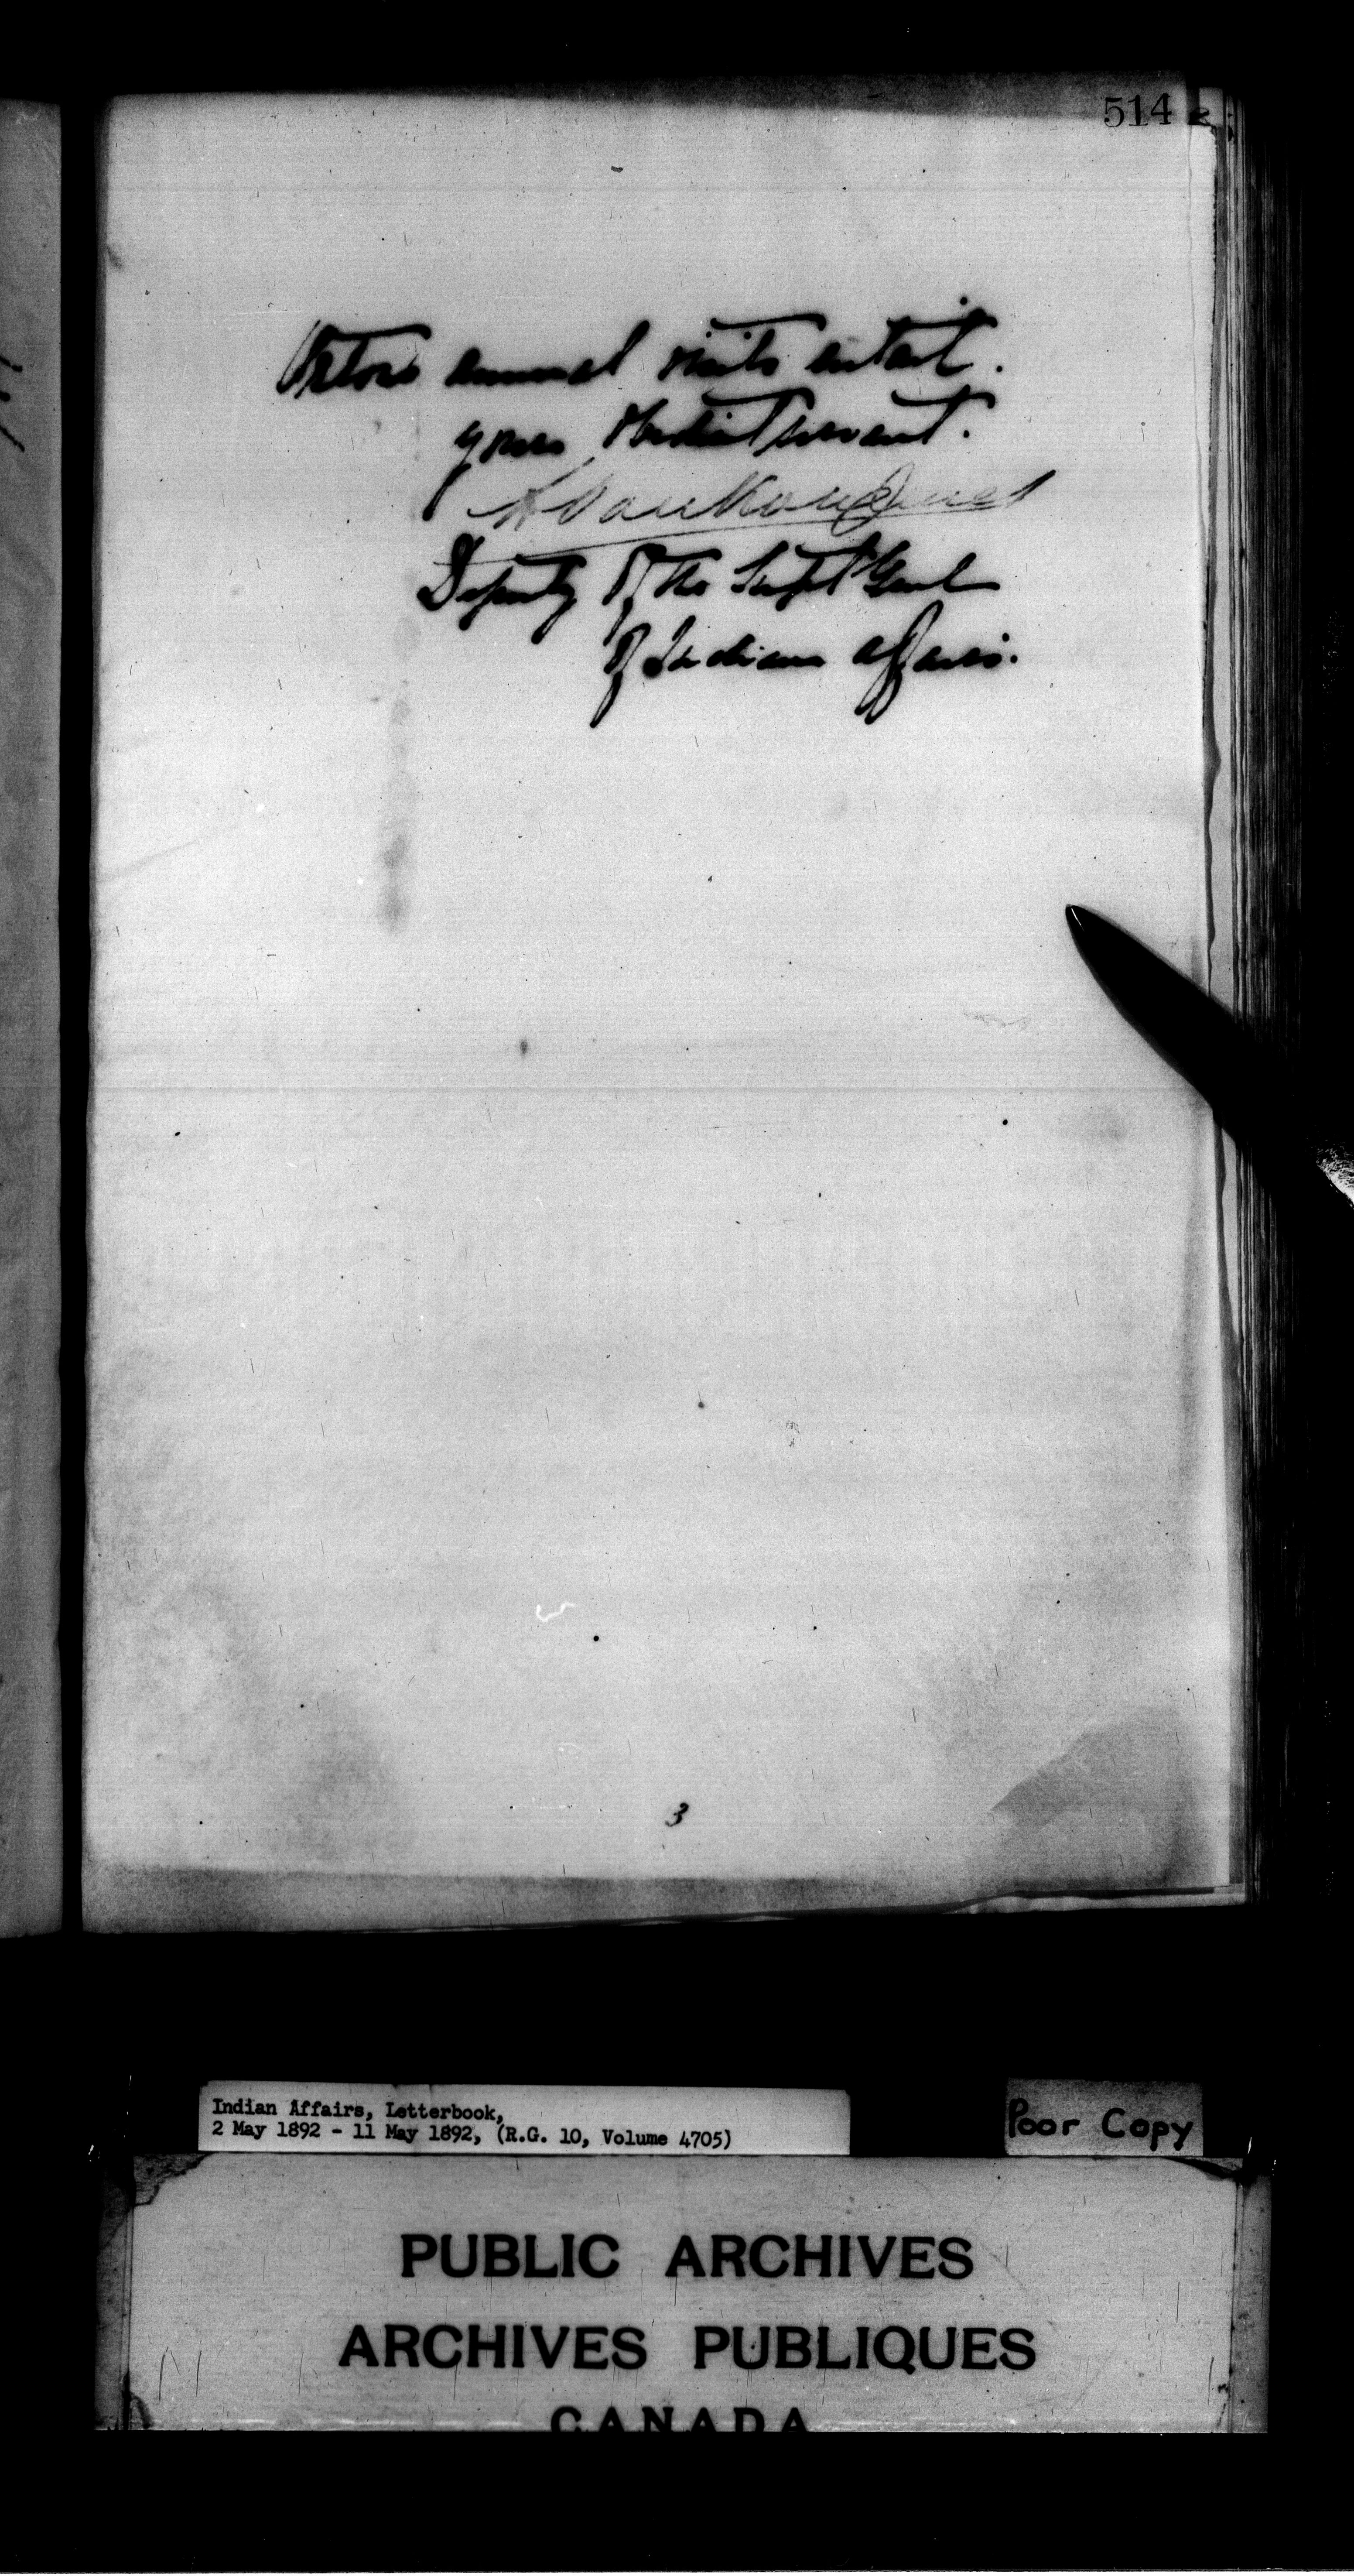 514
annual visits entail.
your obedient servant.
L Vankoughnet
Deputy of the Supt Genl
of Indian affairs.
3
Indian Affairs, Letterbook,
2 May 1892 - 11 May 1892, (R.G. 10, Volume 4705)
Poor Copy
PUBLIC ARCHIVES
ARCHIVES PUBLIQUES
CANADA